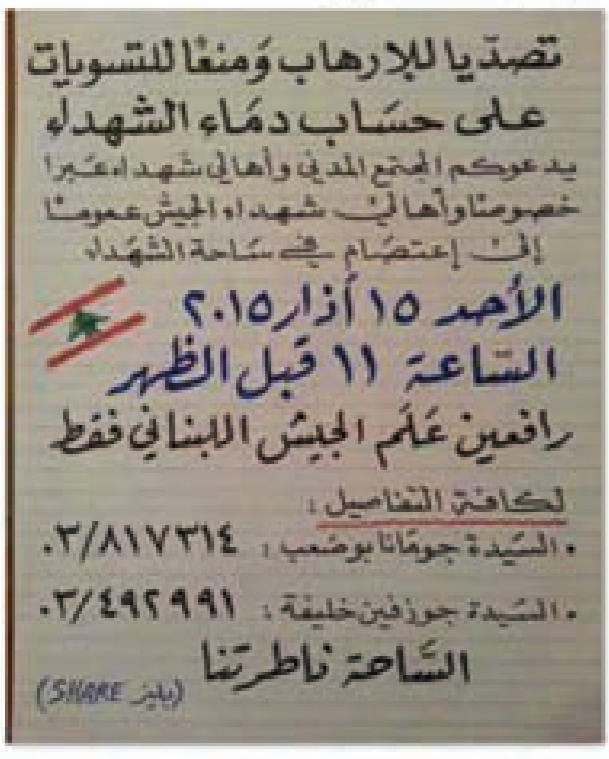 تصدّيا للإرهاب وَمنعًا للتسويات
على حسَاب دمَاء الشهداء
يدعوكم المجتمع المدني وأهالي شهداء عَبرا
خصوصًا وأهالي شهداء الجيش عمومًا
إلى إعتصَام في سَاحة الشهَداء
الأحد ١٥ أذار ٢٠١٥
السّاعة ١١ قبل الظهر
رافعين عَلَم الجيش اللبناني فقط
لكافة التفاصيل :
• السّيدة جومَانا بوضعب : ٠٣/٨١٧٣١٤
• السّيدة جوزفين خليفة : ٠٣/٤٩٢٩٩١
السَّاحة ناطرتنا
(بليز SHARE)